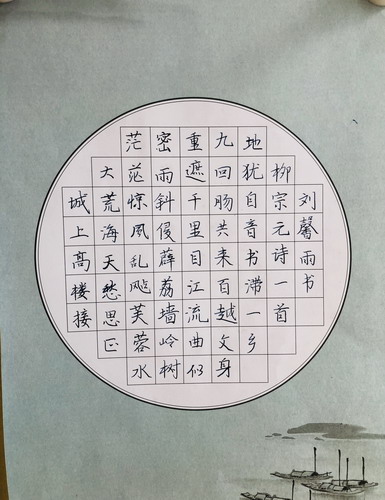 城上高楼接
大荒海天愁思正
茫茫惊风乱飐芙蓉水
密雨斜侵薜荔墙岭树
重遮千里目江流曲似
九回肠共来百越文身
地犹自音书滞一乡
柳宗元诗一首
刘馨雨书